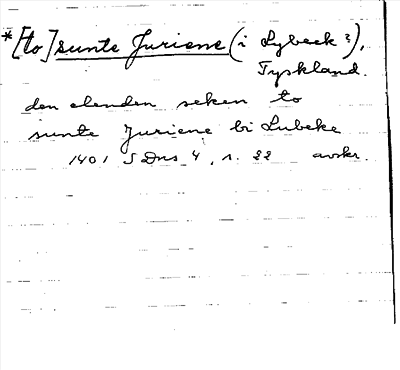 *[to] sunte Juriene (i Lybeck?),
Tyskland.
den elenden seken to
sunte Juriene bi Lubeke
1401 SDns 4, s. 22 avskr.